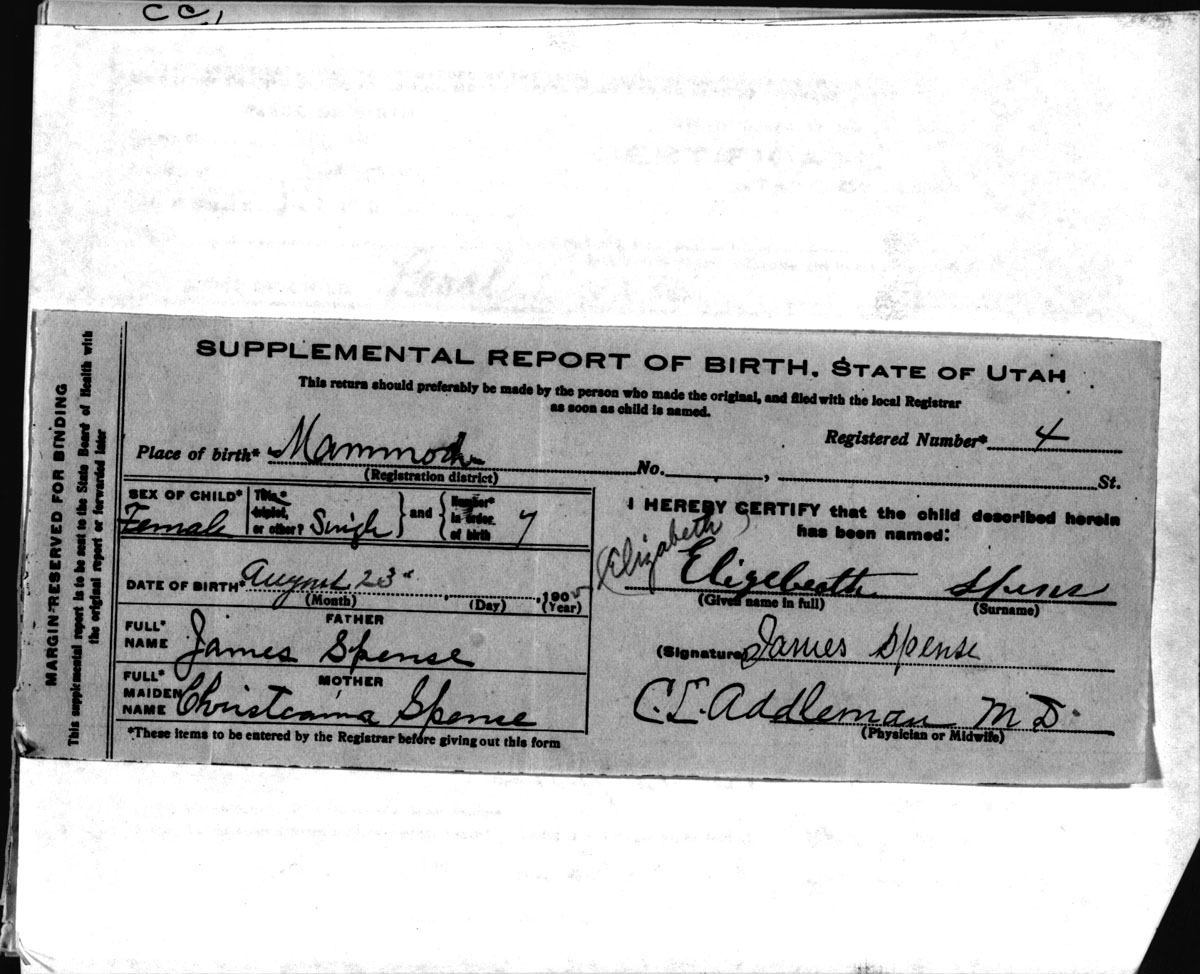 CC,
SUPPLEMENTAL REPORT OF BIRTH, STATE OF UTAH
This return should preferably be made by the person who made the original, and filed with the local Registrar
as soon as child is named.
Registered Number* 4
Place of birth* Mammoth No. , St.
(Registration district)
SEX OF CHILD* Female
Twin,*
triplet,
or other? Single } and { Number*
in order
of birth 7
DATE OF BIRTH* August 23rd , 1905
(Month) (Day) (Year)
FATHER
FULL*
NAME James Spense
MOTHER
FULL*
MAIDEN
NAME Christeanna Spense
*These items to be entered by the Registrar before giving out this form
I HEREBY CERTIFY that the child described herein
has been named:
(Elizabeth)
Elizebeath Spens
(Given name in full) (Surname)
(Signature) James Spense
C. E. Addleman M D.
(Physician or Midwife)
MARGIN RESERVED FOR BINDING
This supplemental report is to be sent to the State Board of Health with
the original report or forwarded later